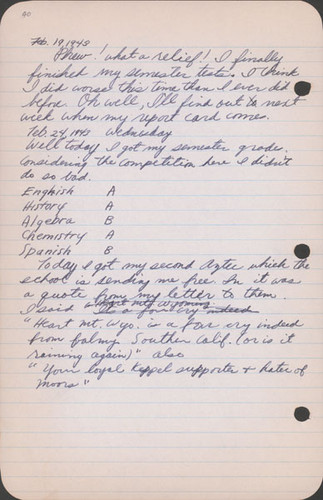 40
Feb. 19, 1943
Phew! what a relief! I finally
finished my semester tests. I think
I did worse this time than I ever did
before. Oh well, I'll find out to next
week when my report card comes.
Feb. 24, 1943 Wednesday
Well today I got my semester grades.
Considering the competition here I didn't
do so bad.
English A
History A
Algebra B
Chemistry A
Spanish B
Today I got my second Aztec which the
school is sending me free. In it was
a quote from my letter to them.
I said
"Heart Mt. Wyo. is a far cry indeed
from balmy Southern Calif. (or is it
raining again)" also
"Your loyal Keppel supporter & hater of
Moors"